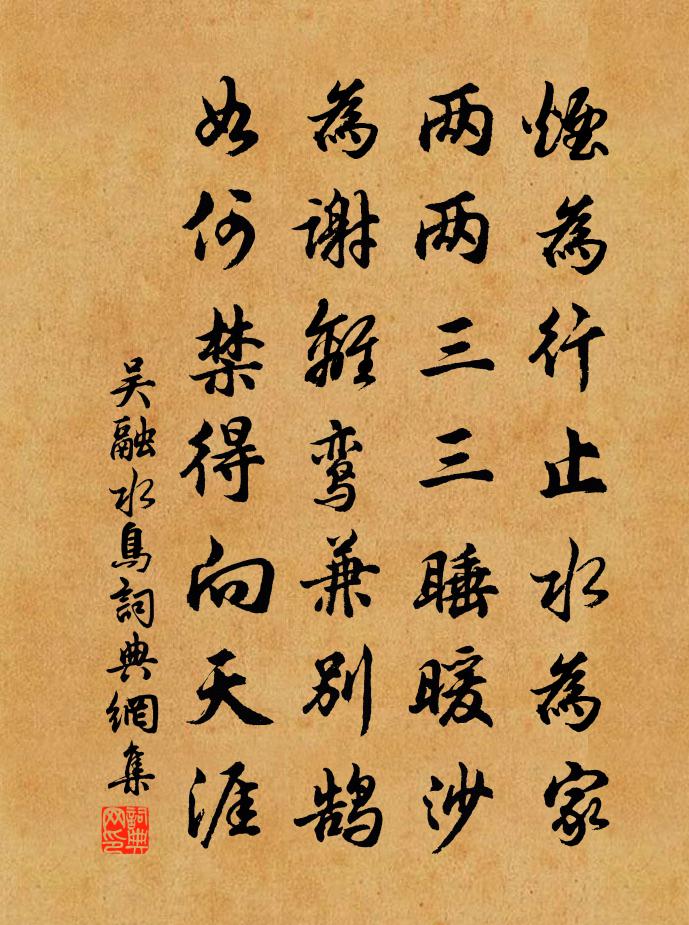 煙為行止水為家
两两三三睡暖沙
為謝離鸾兼別鹄
如何禁得向天涯
吴融水鳥詞典網集
詞典网印